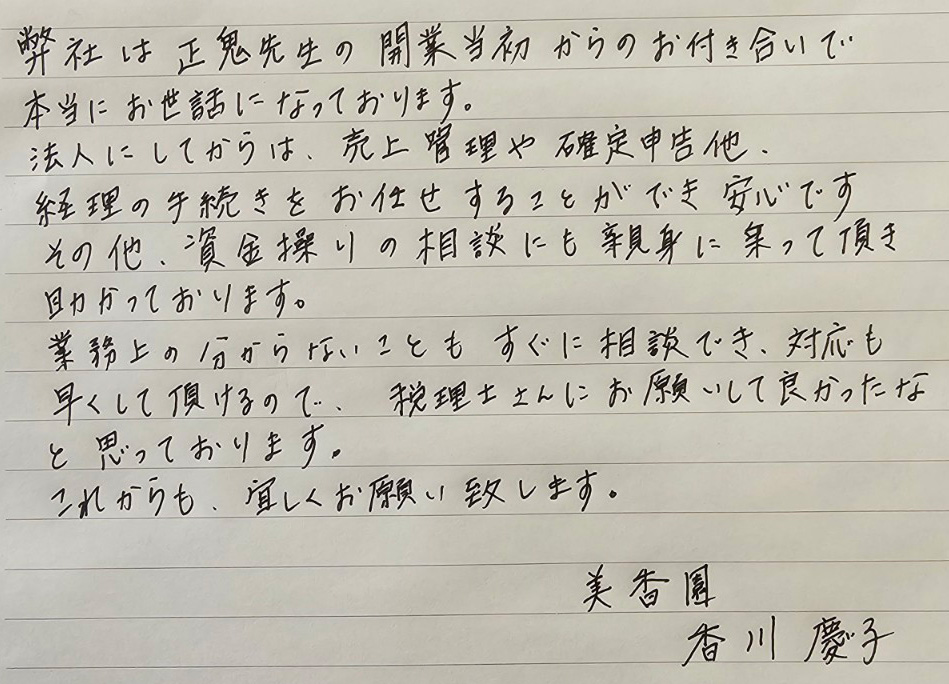 弊社は正鬼先生の開業当初からのお付き合いで
本当にお世話になっております。
法人にしてからは、売上管理や確定申告他、
経理の手続きをお任せすることができ安心です
その他、資金操りの相談にも親身に乗って頂き
助かっております。
業務上の分からないこともすぐに相談でき、対応も
早くして頂けるので、税理士さんにお願いして良かったな
と思っております。
これからも、宜しくお願い致します。
美香園
香川慶子